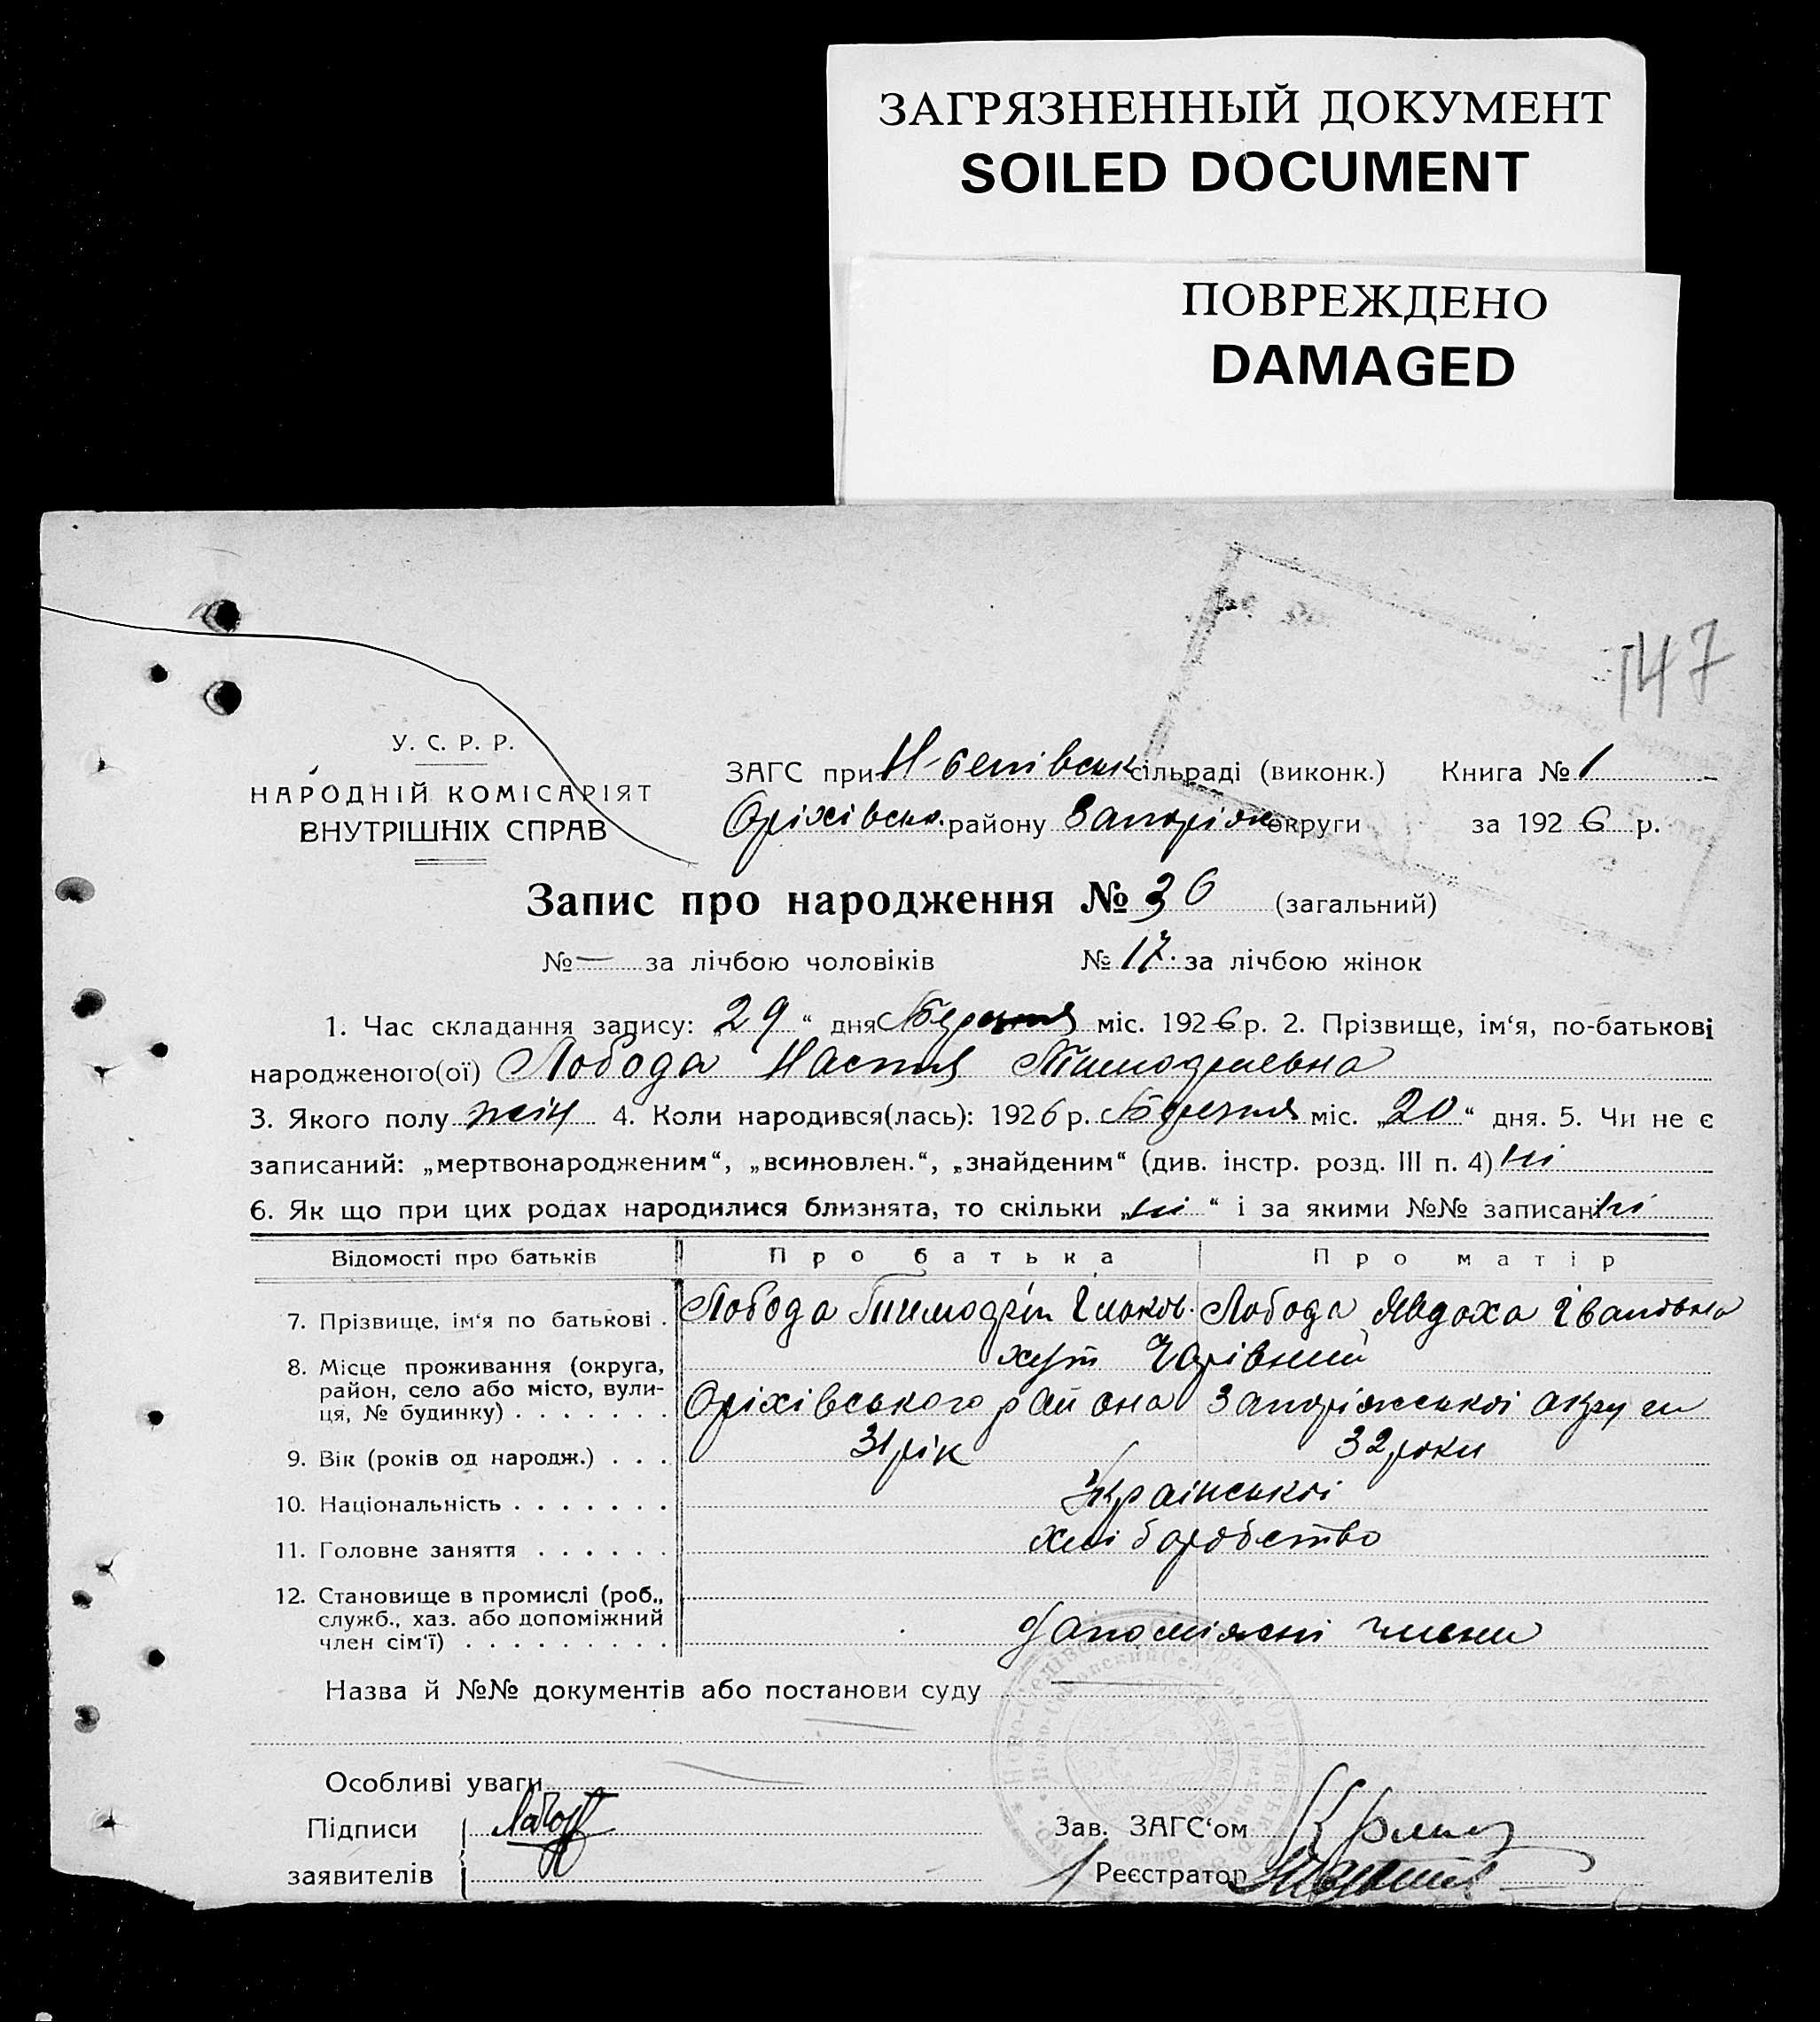 ЗАГРЯЗНЕННЫЙ ДОКУМЕНТ
SOILED DOCUMENT
ПОВРЕЖДЕНО
DAMAGED
147
У. С. Р. Р.
НАРОДНІЙ КОМІСАРІЯТ
ВНУТРІШНІХ СПРАВ
ЗАГС при Н-селівськ сільраді (виконк.) Книга № 1
Оріхівськ. району Запоріж округи за 1926 р.
Запис про народження № 36 (загальний)
№ — за лічбою чоловіків № 17. за лічбою жінок
1. Час складання запису: „29“ дня Березня міс. 1926 р. 2. Прізвище, ім‘я, по-батькові
народженого(ої) Лобода Настя Тимофієвна
3. Якого полу жін 4. Коли народився(лась): 1926 р. Березня міс. „20“ дня. 5. Чи не є
записаний: „мертвонародженим“, „всиновлен.“, „знайденим“ (див. інстр. розд. III п. 4) ні
6. Як що при цих родах народилися близнята, то скільки „ні“ і за якими №№ записані ні
Відомості про батьків Про батька Про матір
7. Прізвище, ім‘я по батькові . Лобода Тимофій Лобода Явдоха Івановна
8. Місце проживання (округа, хут Чарівний
район, село або місто, вули-
ця, № будинку) . . . . . . . Оріхівського района Запоріжської округи
9. Вік (років од народж.) . . . 31 рік 32 роки
10. Національність . . . . . . . Української
11. Головне заняття . . . . . . хліборобство
12. Становище в промислі (роб.,
служб., хаз. або допоміжний
член сім‘ї) . . . . . . . . . Допоміжні члени
Назва й №№ документів або постанови суду —
Особливі уваги
Підписи Зав. ЗАГС‘ом
заявителів Реєстратор